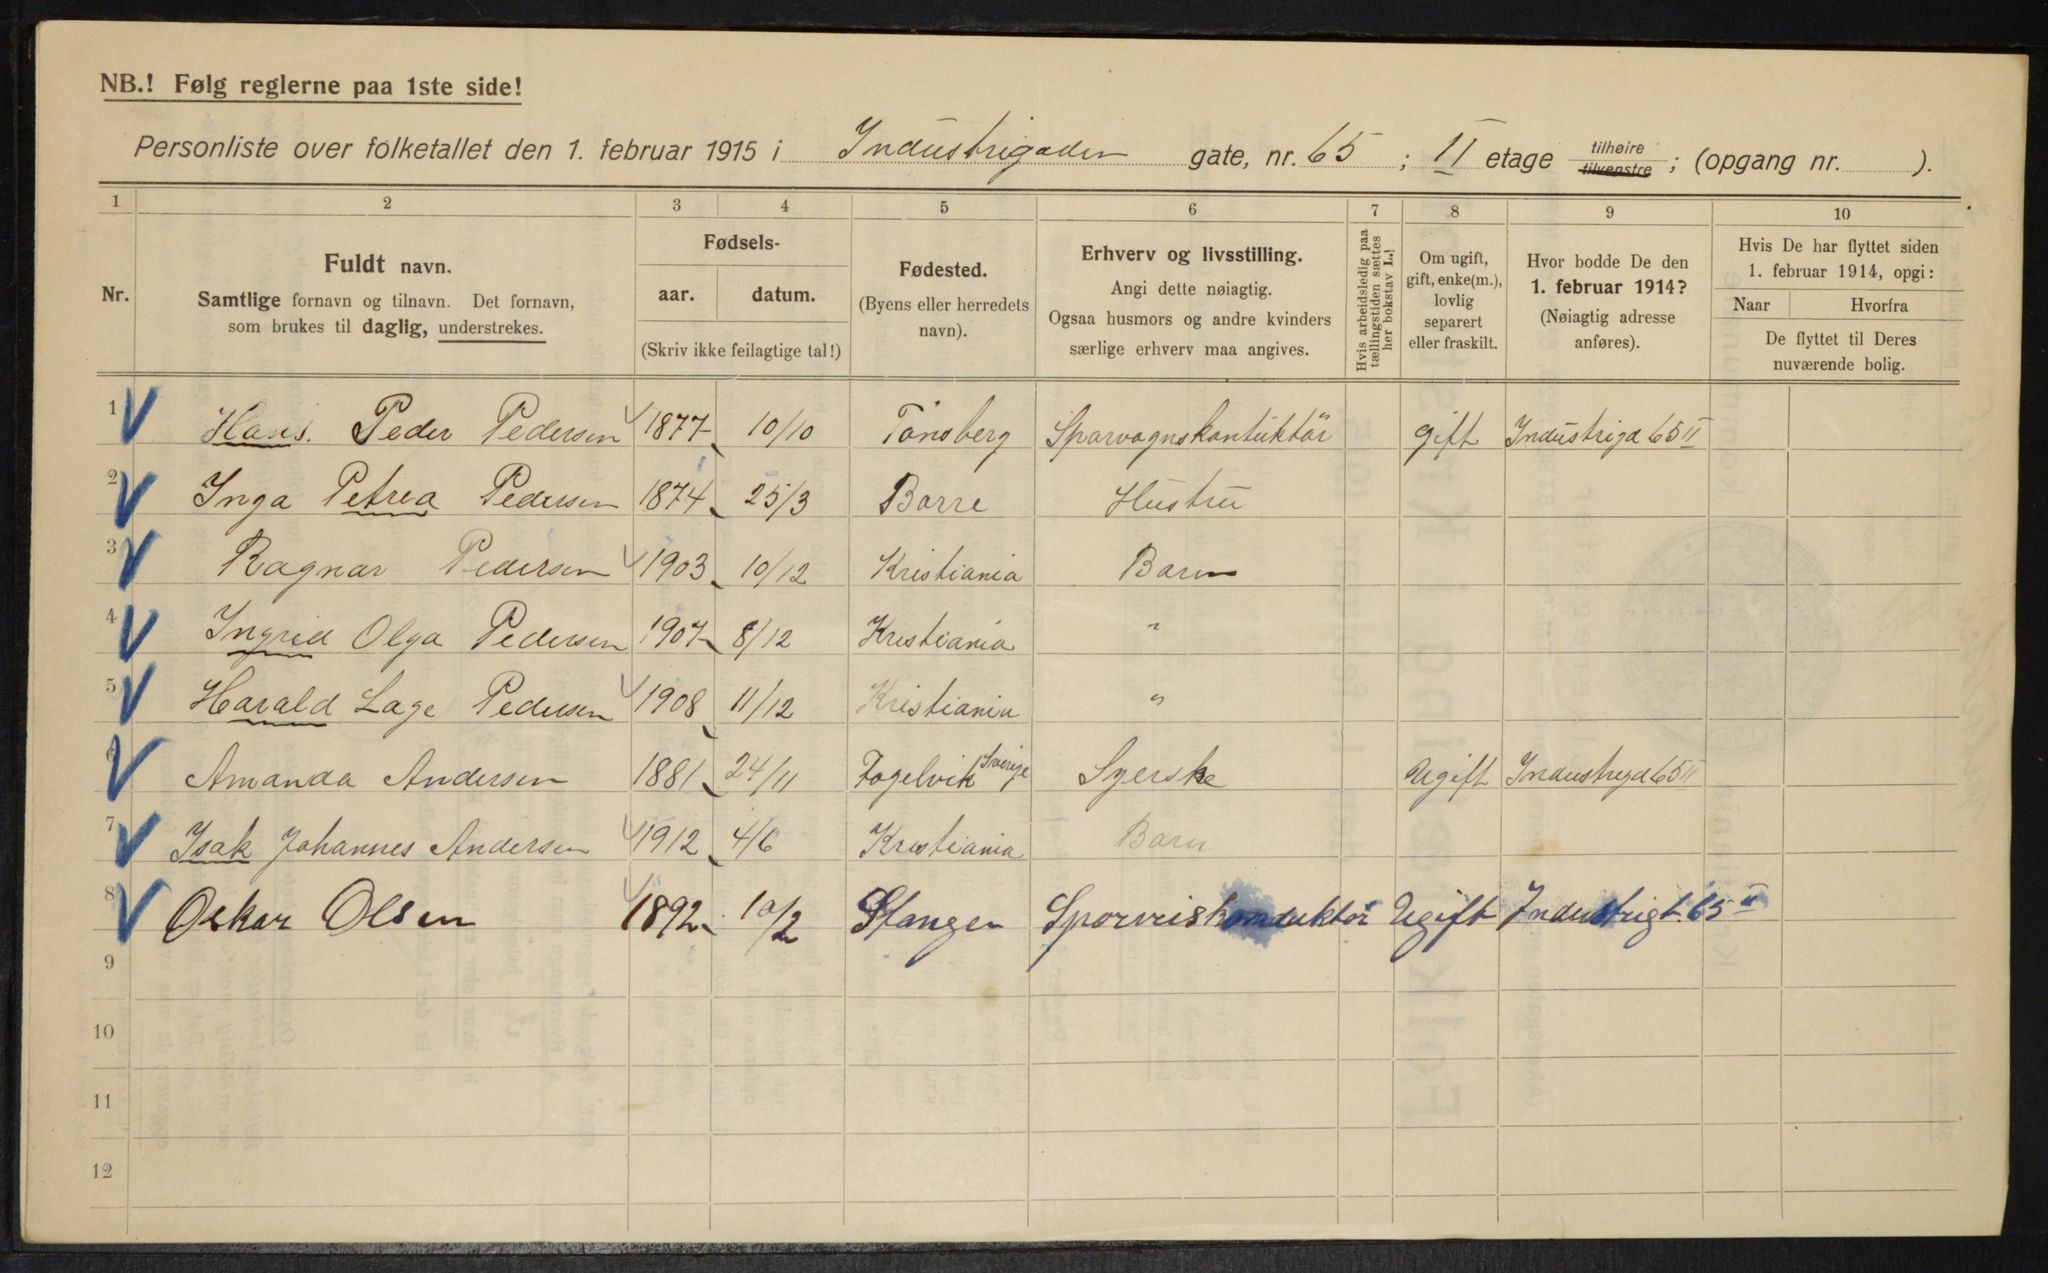 NB.! Følg reglerne paa 1ste side!
Personliste over folketallet den 1. februar 1915 i Industrigaden gate, nr. 65 ; II etage tilhøire tilvenstre ; (opgang nr. ).
1 2 3 4 5 6 7 8 9 10
Nr.
Fuldt navn.
Samtlige fornavn og tilnavn. Det fornavn,
som brukes til daglig, understrekes.
Fødsels-
aar. datum.
(Skriv ikke feilagtige tal!)
Fødested.
(Byens eller herredets
navn).
Erhverv og livsstilling.
Angi dette nøiagtig.
Ogsaa husmors og andre kvinders
særlige erhverv maa angives.
Hvis arbeidsledig paa
tællingstiden sættes
her bokstav L.!
Om ugift,
gift, enke(m.),
lovlig
separert
eller fraskilt.
Hvor bodde De den
1. februar 1914?
(Nøiagtig adresse
anføres).
Hvis De har flyttet siden
1. februar 1914, opgi:
Naar Hvorfra
De flyttet til Deres
nuværende bolig.
1 Hans. Peder Pedersen 1877 10/10 Tönsberg Sporvognskonduktör gift Industrigd 65 II
2 Inga Petrea Pedersen 1874 25/3 Borre Hustru
3 Ragnar Pedersen 1903 10/12 Kristiania Barn
4 Ingrid Olga Pedersen 1907 8/12 Kristiania "
5 Harald Lage Pedersen 1908 11/12 Kristiania "
6 Amanda Andersen 1881 24/11 Fogelvik Sverige Syerske Ugift Industrigd 65 II
7 Isak Johannes Andersen 1912 4/6 Kristiania Barn
8 Oskar Olsen 1892 10/2 Stangen Sporveiskonduktör Ugift Industrigt. 65 II
9
10
11
12